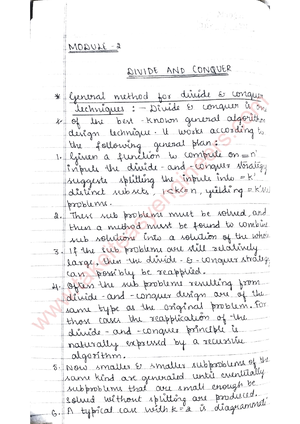 MODULE - 2
DIVIDE AND CONQUER
* General method for divide & conquer
techniques : - Divide & conquer is one
of the best - known general algorithm
design technique. It works according to
the following general plan :
1. Given a function to compute on 'n'
inputs the divide - and - conquer strategy
suggests splitting the inputs into 'k'
distinct subsets, 1<k<=n, yielding 'k' sub
problems.
2. These sub problems must be solved, and
then a method must be found to combine
sub solutions into a solution of the whole
3. If the sub problems are still relatively
large, then the divide - & - conquer strategy
can possibly be reapplied.
4. Often the sub problems resulting from
divide - and - conquer design are of the
same type as the original problem. For
those cases the reapplication of the
divide - and - conquer principle is
naturally expressed by a recursive
algorithm.
5. Now smaller & smaller subproblems of the
same kind are generated until eventually
subproblems that are small enough to be
solved without splitting are produced.
6. A typical case with k=2 is diagrammat